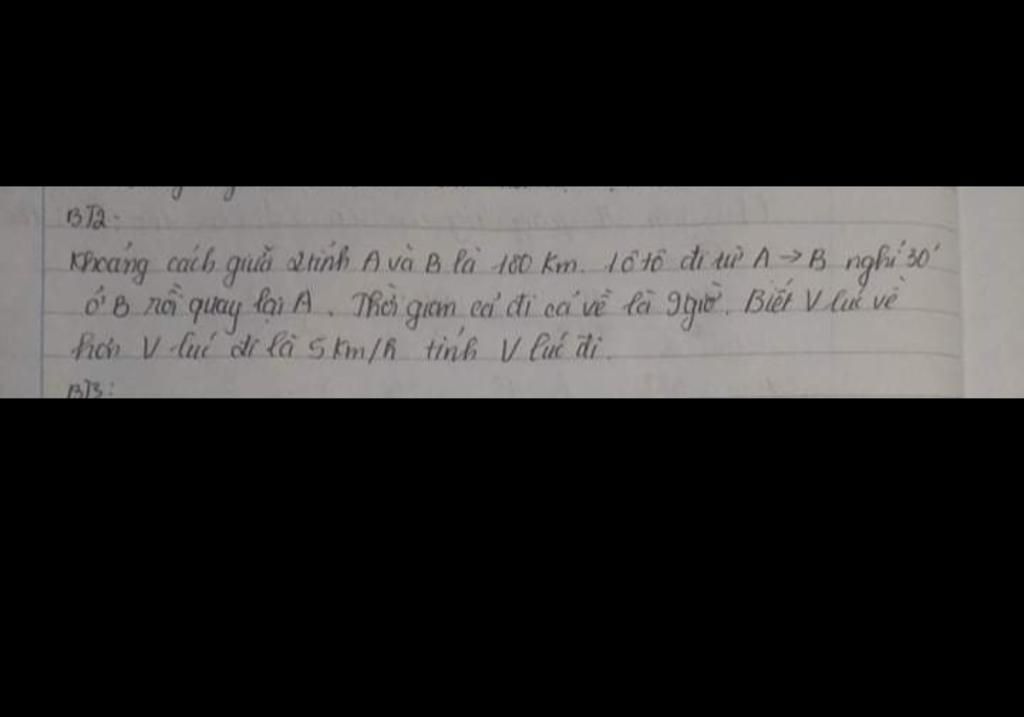 BT2:
Khoảng cách giữa 2 tỉnh A và B là 180 Km. 1 ô tô đi từ A → B nghỉ 30'
ở B rồi quay lại A. Thời gian cả đi cả về là 9 giờ. Biết V lúc về
hơn V lúc đi là 5 Km/h tính V lúc đi.
BT3: